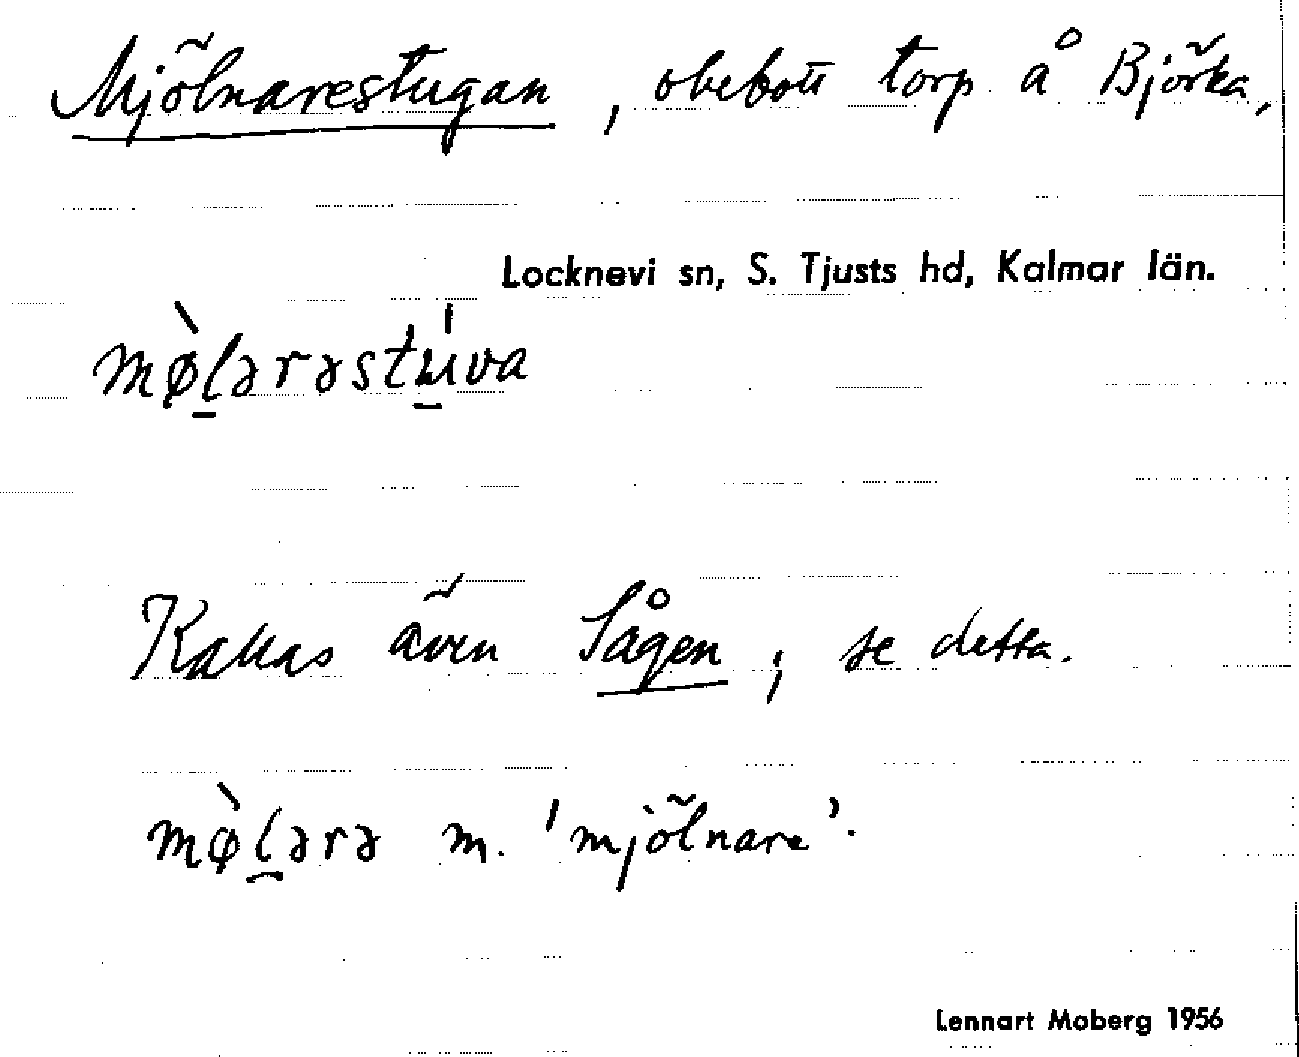 Mjölnarestugan, obebott torp å Björka,
Locknevi sn, S. Tjusts hd, Kalmar län.
mø̀l̲ərəstu̲ˈva
Kallas även Sågen; se detta.
mø̀l̲ərə m. 'mjölnare'.
Lennart Moberg 1956